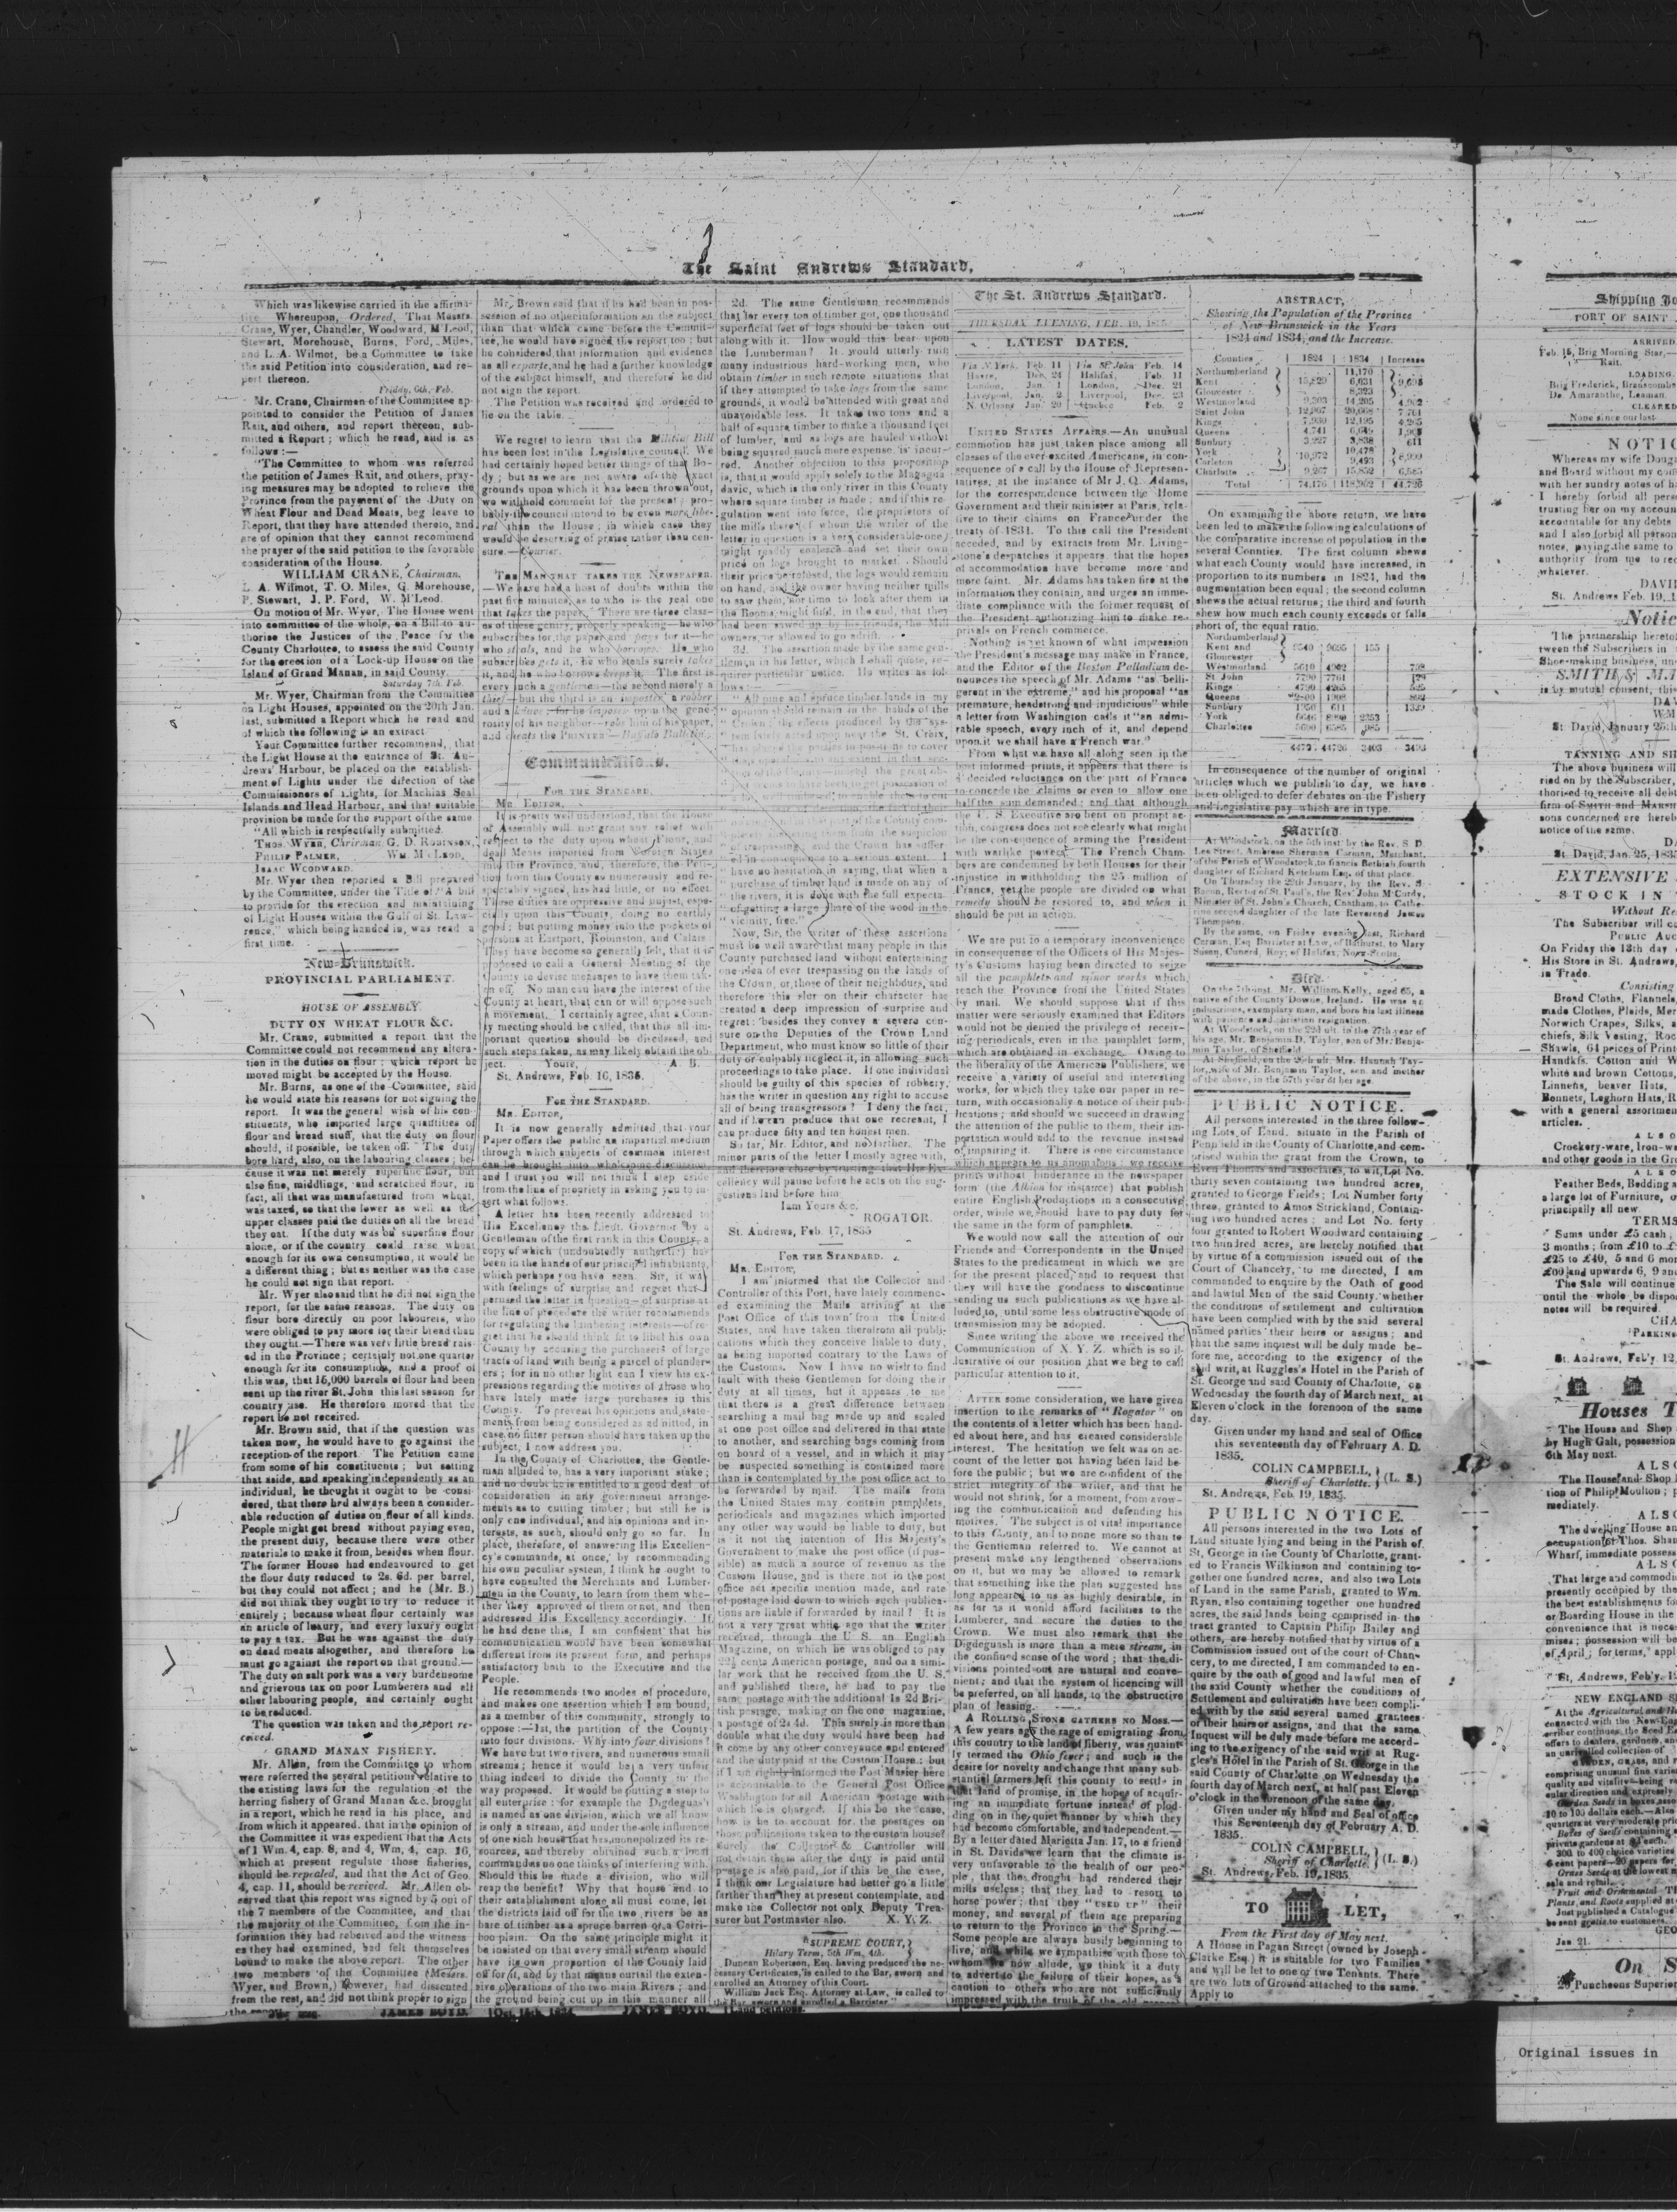 The Saint Andrews Standard,
Which was likewise carried in the affirma-
tive Whereupon, Ordered, That Messrs.
Crane, Wyer, Chandler, Woodward, M'Leod,
Stewart, Morehouse, Burns, Ford, Miles,
and L. A. Wilmot, be a Committee to take
the said Petition into consideration, and re-
port thereon.
Friday, 6th, Feb.
Mr. Crane, Chairman of the Committee ap-
pointed to consider the Petition of James
Rait, and others, and report thereon, sub-
mitted a Report; which he read, and is as
follows:—
"The Committee to whom was referred
the petition of James Rait, and others, pray-
ing measures may be adopted to relieve the
Province from the payment of the Duty on
Wheat Flour and Dead Meats, beg leave to
Report, that they have attended thereto, and
are of opinion that they cannot recommend
the prayer of the said petition to the favorable
consideration of the House.
WILLIAM CRANE, Chairman.
L. A. Wilmot, T. O. Miles, G. Morehouse,
P. Stewart, J. P. Ford, W. M'Leod.
On motion of Mr. Wyer, The House went
into committee of the whole, on a Bill to au-
thorise the Justices of the Peace for the
County Charlottee, to assess the said County
for the erection of a Lock-up House on the
Island of Grand Manan, in said County.
Saturday 7th, Feb.
Mr. Wyer, Chairman from the Committee
on Light Houses, appointed on the 20th Jan.
last, submitted a Report which he read and
of which the following is an extract
Your Committee further recommend, that
the Light House at the entrance of St. An-
drews' Harbour, be placed on the establish-
ment of Lights under the direction of the
Commissioners of Lights, for Machias Seal
Islands and Head Harbour, and that suitable
provision be made for the support of the same
"All which is respectfully submitted.
THOS. WYER, Chairman, G. D. ROBINSON,
PHILIP PALMER, WM. M'LEOD,
ISAAC WOODWARD.
Mr. Wyer then reported a Bill prepared
by the Committee, under the Title of "A bill
to provide for the erection and maintaining
of Light Houses within the Gulf of St. Law-
rence," which being handed in, was read a
first time.
New-Brunswick.
PROVINCIAL PARLIAMENT.
HOUSE OF ASSEMBLY
DUTY ON WHEAT FLOUR &C.
Mr. Crane, submitted a report that the
Committee could not recommend any altera-
tion in the duties on flour; which report he
moved might be accepted by the House.
Mr. Burns, as one of the Committee, said
he would state his reasons for not signing the
report. It was the general wish of his con-
stituents, who imported large quantities of
flour and bread stuff, that the duty on flour
should, if possible, be taken off. The duty
bore hard, also, on the labouring classes; be-
cause it was not merely superfine flour, but
also fine, middlings, and scratched flour, in
fact, all that was manufactured from wheat,
was taxed, so that the lower as well as the
upper classes paid the duties on all the bread
they eat. If the duty was on superfine flour
alone, or if the country could raise wheat
enough for its own consumption, it would be
a different thing; but as neither was the case
he could not sign that report.
Mr. Wyer also said that he did not sign the
report, for the same reasons. The duty on
flour bore directly on poor labourers, who
were obliged to pay more for their bread than
they ought.—There was very little bread rais-
ed in the Province; certainly not one quarter
enough for its consumption, and a proof of
this was, that 15,000 barrels of flour had been
sent up the river St. John this last season for
country use. He therefore moved that the
report be not received.
Mr. Brown said, that if the question was
taken now, he would have to go against the
reception of the report. The Petition came
from some of his constituents; but setting
that aside, and speaking independently as an
individual, he thought it ought to be consi-
dered, that there had always been a consider-
able reduction of duties on flour of all kinds.
People might get bread without paying even,
the present duty, because there were other
materials to make it from, besides when flour.
The former House had endeavoured to get
the flour duty reduced to 2s. 6d. per barrel,
but they could not affect; and he (Mr. B.)
did not think they ought to try to reduce it
entirely; because wheat flour certainly was
an article of luxury, and every luxury ought
to pay a tax. But he was against the duty
on dead meats altogether, and therefore he
must go against the report on that ground.—
The duty on salt pork was a very burdensome
and grievous tax on poor Lumberers and all
other labouring people, and certainly ought
to be reduced.
The question was taken and the report re-
ceived.
GRAND MANAN FISHERY.
Mr. Allen, from the Committee to whom
were referred the several petitions relative to
the existing laws for the regulation of the
herring fishery of Grand Manan &c. brought
in a report, which he read in his place, and
from which it appeared, that in the opinion of
the Committee it was expedient that the Acts
of 1 Wm. 4, cap. 8, and 4, Wm, 4, cap. 16,
which at present regulate those fisheries,
should be repealed, and that the Act of Geo.
4, cap. 11, should be revived. Mr. Allen ob-
served that this report was signed by 5 out of
the 7 members of the Committee, and that
the majority of the Committee, from the in-
formation they had received and the witness
es they had examined, had felt themselves
bound to make the above report. The other
two members of the Committee (Messrs.
Wyer, and Brown,) however, had dissented
from the rest, and did not think proper to sign
Mr. Brown said that if he had been in pos-
session of no other information on the subject
than that which came before the Commit-
tee, he would have signed the report too; but
he considered that information and evidence
as all exparte, and he had a further knowledge
of the subject himself, and therefore he did
not sign the report.
The Petition was received and ordered to
lie on the table.
We regret to learn that the Militia Bill
has been lost in the Legislative council. We
had certainly hoped better things of that Bo-
dy; but as we are not aware of the exact
grounds upon which it has been thrown out,
we withhold comment for the present; pro-
bably the council intend to be even more libe-
ral than the House; in which case they
would be deserving of praise rather than cen-
sure.—Courier.
THE MAN THAT TAKES THE NEWSPAPER.
—We have had a host of doubts within the
past five minutes, as to who is the real one
that takes the paper. There are three class-
es of these gentry, properly speaking—he who
subscribes for the paper and pays for it—he
who steals, and he who borrows. He who
subscribes gets it, he who steals surely takes
it, and he who borrows keeps it. The first is
every inch a gentleman—the second merely a
thief—but the third is an impostor, a robber
and a slave—for he imposes upon the gene-
rosity of his neighbor—robs him of his paper,
and cheats the PRINTER—Buffalo Bulletin.
Communications.
FOR THE STANDARD.
MR. EDITOR,
It is pretty well understood, that the House
of Assembly will not grant any relief with
respect to the duty upon wheat Flour, and
dead Meats imported from Foreign States
into this Province, and, therefore, the Peti-
tion from this County so numerously and re-
spectably signed, has had little, or no effect.
These duties are oppressive and unjust, espe-
cially upon this County, doing no earthly
good; but putting money into the pockets of
persons at Eastport, Robinston, and Calais:
They have become so generally felt, that it is
proposed to call a General Meeting of the
County to devise measures to have them tak-
en off. No man can have the interest of the
County at heart, that can or will oppose such
a movement. I certainly agree, that a Coun-
ty meeting should be called, that this all im-
portant question should be discussed, and
such steps taken, as may likely obtain the ob-
ject. Yours, A. B.
St. Andrews, Feb. 16, 1835.
FOR THE STANDARD.
MR. EDITOR,
It is now generally admitted that your
Paper offers the public an impartial medium
through which subjects of common interest
can be brought into wholesome discussion
and I trust you will not think I step aside
from the line of propriety in asking you to in-
sert what follows.
A letter has been recently addressed to
His Excellency the Lieut. Governor by a
Gentleman of the first rank in this County, a
copy of which (undoubtedly authentic) has
been in the hands of our principal inhabitants,
which perhaps you have seen. Sir, it was
with feelings of surprise and regret that I
perused the letter in question—of surprise at
the line of procedure the writer recommends
for regulating the lumbering interests—of re-
gret that he should think fit to libel his own
County by accusing the purchasers of large
tracts of land with being a parcel of plunder-
ers; for in no other light can I view his ex-
pressions regarding the motives of those who
have lately made large purchases in this
County. To prevent his opinions and state-
ments from being considered as admitted, in
case no fitter person should have taken up the
subject, I now address you.
In the County of Charlottee, the Gentle-
man alluded to, has a very important stake;
and no doubt he is entitled to a good deal of
consideration in any government arrange-
ments as to cutting timber; but still he is
only one individual, and his opinions and in-
terests, as such, should only go so far. In
place, therefore, of answering His Excellen-
cy's commands, at once, by recommending
his own peculiar system, I think he ought to
have consulted the Merchants and Lumber-
men in the County, to learn from them whe-
ther they approved of them or not, and then
addressed His Excellency accordingly. If
he had done this, I am confident that his
communication would have been somewhat
different from its present form, and perhaps
satisfactory both to the Executive and the
People.
He recommends two modes of procedure,
and makes one assertion which I am bound,
as a member of this community, strongly to
oppose:—1st, the partition of the County
into four divisions. Why into four divisions?
We have but two rivers, and numerous small
streams; hence it would be a very unfair
thing indeed to divide the County in the
way proposed. It would be putting a stop to
all enterprise: for example the Digdeguash
is named as one division, which we all know
is only a stream, and under the sole influence
of one rich house that has monopolized its re-
sources, and thereby obtained such a local
command as no one thinks of interfering with.
Should this be made a division, who will
reap the benefit? Why that house and to
their establishment alone all must come, let
the districts laid off for the two rivers be as
bare of timber as a spruce barren or a Carri-
boo plain. On the same principle might it
be insisted on that every small stream should
have its own proportion of the County laid
off for it, and by that means curtail the exten-
sive operations of the two main Rivers; and
the ground being cut up in this manner all
2d. The same Gentleman recommends
that for every ton of timber got, one thousand
superficial feet of logs should be taken out
along with it. How would this bear upon
the Lumberman? It would utterly ruin
many industrious hard-working men, who
obtain timber in such remote situations that
if they attempted to take logs from the same
grounds, it would be attended with great and
unavoidable loss. It takes two tons and a
half of square timber to make a thousand feet
of lumber, and as logs are hauled without
being squared much more expense is incur-
red. Another objection to this proposition
is, that it would apply solely to the Magagua-
davic, which is the only river in this County
where square timber is made; and if this re-
gulation went into force, the proprietors of
the mills there (of whom the writer of the
letter in question is a very considerable one)
might readily coalesce and set their own
price on logs brought to market. Should
their price be refused, the logs would remain
on hand, and the owner having neither mills
to saw them, nor time to look after them in
the Booms, might find, in the end, that they
had been sawed up by his friends, the Mill
owners, or allowed to go adrift.
3d. The assertion made by the same gen-
tleman in his letter, which I shall quote, re-
quires particular notice. He writes as fol-
lows:—
"All pine and spruce timber lands in my
"opinion should remain in the hands of the
"Crown; the effects produced by the sys-
"tem lately acted upon near the St. Croix,
"purchase of timber land is made on any of
"the rivers, it is done with the full expecta-
"of getting a large share of the wood in the
"vicinity, free."
Now, Sir, the writer of these assertions
must be well aware that many people in this
County purchased land without entertaining
one idea of ever trespassing on the lands of
the Crown, or, those of their neighbours, and
therefore this slur on their character has
created a deep impression of surprise and
regret: besides they convey a severe cen-
sure on the Deputies of the Crown Land
Department, who must know so little of their
duty or culpably neglect it, in allowing such
proceedings to take place. If one individual
should be guilty of this species of robbery,
has the writer in question any right to accuse
all of being transgressors? I deny the fact,
and if he can produce that one recreant, I
can produce fifty and ten honest men.
So far, Mr. Editor, and no farther. The
minor parts of the letter I mostly agree with,
and therefore close by trusting that His Ex-
cellency will pause before he acts on the sug-
gestions laid before him.
I am Yours &c.
ROGATOR.
St. Andrews, Feb. 17, 1835
FOR THE STANDARD.
MR. EDITOR,
I am informed that the Collector and
Controller of this Port, have lately commenc-
ed examining the Mails arriving at the
Post Office of this town from the United
States, and have taken therefrom all publi-
cations which they conceive liable to duty,
as being imported contrary to the Laws of
the Customs. Now I have no wish to find
fault with these Gentlemen for doing their
duty at all times, but it appears to me
that there is a great difference between
searching a mail bag made up and sealed
at one post office and delivered in that state
to another, and searching bags coming from
on board of a vessel, and in which it may
be suspected something is contained more
than is contemplated by the post office act to
be forwarded by mail. The mails from
the United States may contain pamphlets,
periodicals and magazines which imported
any other way would be liable to duty, but
is it not the intention of His Majesty's
Government to make the post office (if pos-
sible) as much a source of revenue as the
Custom House, and is there not in the post
office act specific mention made, and rate
of postage laid down to which such publica-
tions are liable if forwarded by mail? It is
not a very great while ago that the writer
received, through the U. S. an English
Magazine, on which he was obliged to pay
22½ cents American postage, and on a simi-
lar work that he received from the U. S.
and published there, he had to pay the
same postage with the additional 1s 2d Bri-
tish postage, making on the one magazine,
a postage of 2s 4d. This surely is more than
double what the duty would have been had
it come by any other conveyance and entered
and the duty paid at the Custom House: but
if I am rightly informed the Post Master here
is accountable to the General Post Office
Washington for all American postage with
which he is charged. If this be the case,
how is he to account for the postages on
those publications taken to the custom house?
Surely the Collector & Controller will
not detain them after the duty is paid until
postage is also paid, for if this be the case,
I think our Legislature had better go a little
farther than they at present contemplate, and
make the Collector not only Deputy Trea-
surer but Postmaster also. X. Y. Z.
SUPREME COURT,
Hilary Term, 5th Wm, 4th.
Duncan Robertson, Esq. having produced the ne-
cessary Certificates, is called to the Bar, sworn and
enrolled an Attorney of this Court.
William Jack Esq. Attorney at Law, is called to
the Bar, sworn and enrolled a Barrister
The St. Andrews Standard.
THURSDAY EVENING, FEB. 19, 1835
LATEST DATES.
Via N. York, Feb. 11 | Via St John Feb. 14
Havre, Dec. 24 | Halifax, Feb. 11
London, Jan. 1 | London, Dec. 21
Liverpool, Jan. 2 | Liverpool, Dec. 23
N. Orleans Jan. 20 | Quebec Feb. 2
UNITED STATES AFFAIRS.—An unusual
commotion has just taken place among all
classes of the ever excited Americans, in con-
sequence of a call by the House of Represen-
tatives, at the instance of Mr J. Q. Adams,
for the correspondence between the Home
Government and their minister at Paris, rela-
tive to their claims on France under the
treaty of 1831. To this call the President
acceded, and by extracts from Mr. Living-
stone's despatches it appears that the hopes
of accommodation have become more and
more faint. Mr. Adams has taken fire at the
information they contain, and urges an imme-
diate compliance with the former request of
the President authorizing him to make re-
prisals on French commerce.
Nothing is yet known of what impression
the President's message may make in France,
and the Editor of the Boston Palladium de-
nounces the speech of Mr. Adams "as belli-
gerent in the extreme," and his proposal "as
premature, headstrong and injudicious" while
a letter from Washington calls it "an admi-
rable speech, every inch of it, and depend
upon it we shall have a French war."
From what we have all along seen in the
best informed prints, it appears that there is
a decided reluctance on the part of France
to concede the claims or even to allow one
half the sum demanded: and that although
the U. S. Executive are bent on prompt ac-
tion, congress does not see clearly what might
be the consequence of arming the President
with warlike power. The French Cham-
bers are condemned by both Houses for their
injustice in withholding the 25 million of
Francs, yet the people are divided on what
remedy should be restored to, and when it
should be put in action.
We are put to a temporary inconvenience
in consequence of the Officers of His Majes-
ty's Customs having been directed to seize
all the pamphlets and minor works which
reach the Province from the United States
by mail. We should suppose that if this
matter were seriously examined that Editors
would not be denied the privilege of receiv-
ing periodicals, even in the pamphlet form,
which are obtained in exchange. Owing to
the liberality of the American Publishers, we
receive a variety of useful and interesting
works, for which they take our paper in re-
turn, with occasionally a notice of their pub-
lications; and should we succeed in drawing
the attention of the public to them, their im-
portation would add to the revenue instead
of impairing it. There is one circumstance
which appears to us anomalous: we receive
prints without hinderance in the newspaper
form (the Albion for insiarce) that publish
entire English Productions in a consecutive
order, while we should have to pay duty for
the same in the form of pamphlets.
We would now call the attention of our
Friends and Correspondents in the United
States to the predicament in which we are
for the present placed, and to request that
they will have the goodness to discontinue
sending us such publications as we have al-
luded to, until some less obstructive mode of
transmission may be adopted.
Since writing the above we received the
Communication of X. Y. Z. which is so il-
lustrative of our position that we beg to call
particular attention to it.
AFTER some consideration, we have given
insertion to the remarks of "Rogator" on
the contents of a letter which has been hand-
ed about here, and has created considerable
interest. The hesitation we felt was on ac-
count of the letter not having been laid be-
fore the public; but we are confident of the
strict integrity of the writer, and that he
would not shrink, for a moment, from avow-
ing the communication and defending his
motives. The subject is of vital importance
to this County, and to none more so than to
the Gentleman referred to. We cannot at
present make any lengthened observations
on it, but we may be allowed to remark
that something like the plan suggested has
long appeared to us as highly desirable, in
as far as it would afford facilities to the
Lumberer, and secure the duties to the
Crown. We must also remark that the
Digdeguash is more than a mere stream, in
the confined sense of the word; that the di-
visions pointed out are natural and conve-
nient; and that the system of licencing will
be preferred, on all hands, to the obstructive
plan of leasing.
A ROLLING STONE GATHERS NO MOSS.—
A few years ago the rage of emigrating from
this country to the land of liberty, was quaint-
ly termed the Ohio fever; and such is the
desire for novelty and change that many sub-
stantial farmers left this county to settle in
that land of promise, in the hopes of acquir-
ing an immediate fortune instead of plod-
ding on in the quiet manner by which they
had become comfortable, and independent.—
By a letter dated Marietta Jan. 17, to a friend
in St. Davids we learn that the climate is
very unfavorable to the health of our peo-
ple, that the drought had rendered their
mills useless; that they had to resort to
horse power; that they "USED UP" their
money, and several of them are preparing
to return to the Province in the Spring.—
Some people are always busily beginning to
live, and while we sympathise with those to
whom we now allude, we think it a duty
to advert to the failure of their hopes, as a
caution to others who are not sufficiently
impressed with the truth of the old
ABSTRACT,
Shewing the Population of the Province
of New Brunswick in the Years
1824 and 1834, and the Increase.
Counties | 1824 | 1834 | Increase
Northumberland 11,170
Kent 15,829 6,031 9,695
Gloucester 8,323
Westmorland 9,303 14,205 4,902
Saint John 12,907 20,668 7,761
Kings 7,930 12,195 4,265
Queens 4,741 6,649 1,908
Sunbury 3,227 3,838 611
York 10,972 10,478 8,999
Carleton 9,493
Charlotte 9,267 15,852 6,585
Total 74,176 118,902 44,726
On examining the above return, we have
been led to make the following calculations of
the comparative increase of population in the
several Counties. The first column shews
what each County would have increased, in
proportion to its numbers in 1824, had the
augmentation been equal; the second column
shews the actual returns; the third and fourth
shew how much each county exceeds or falls
short of, the equal ratio.
Northumberland
Kent and 9540 9695 155
Gloucester
Westmorland 5610 4902
St John 7790 7761
Kings 4790 4265 525
Queens 1908
Sunbury 1950 611 1339
York 6646 8999 2353
Charlottee 5600 6585 985
44726 3493
In consequence of the number of original
articles which we publish to day, we have
been obliged to defer debates on the Fishery
and Legislative pay which are in type.
Married
At Woodstock, on the 5th inst by the Rev. S. D.
Lee Street, Ambrose Sherman Carman, Merchant,
of the Parish of Woodstock, to francis Bethiah fourth
daughter of Richard Ketchum Esq. of that place.
On Thursday the 29th January, by the Rev. S.
Bacon, Rector of St. Paul's, the Rev. John M'Curdy,
Minister of St. John's Church, Chatham, to Cathe-
rine second daughter of the late Reverend James
Thompson.
By the same, on Friday evening last, Richard
Carman, Esq. Barrister at Law, of Bathurst, to Mary
Susan, Cunerd, Roy; of Halifax, Nova Scotia.
Died.
On the 7th inst. Mr. William Kelly, aged 65, a
native of the County Downe, Ireland. He was an
industrious, exemplary man, and bore his last illness
with patience and christian resignation.
At Woodstock, on the 22d ult. in the 27th year of
his age, Mr. Benjamin D. Taylor, son of Mr. Benja-
min Taylor, of Sheffield
At Sheffield, on the 25th ult. Mrs. Hannah Tay-
lor, wife of Mr. Benjamin Taylor, sen. and mother
of the above, in the 57th year of her age.
PUBLIC NOTICE.
All persons interested in the three follow-
ing Lots of Land, situate in the Parish of
Pennfield in the County of Charlotte, and com-
prised within the grant from the Crown, to
Even Thomas and associates, to wit, Lot No.
thirty seven containing two hundred acres,
granted to George Fields; Lot Number forty
three, granted to Amos Strickland, Contain-
ing two hundred acres; and Lot No. forty
four granted to Robert Woodward containing
two hundred acres, are hereby notified that
by virtue of a commission issued out of the
Court of Chancery, to me directed, I am
commanded to enquire by the Oath of good
and lawful Men of the said County, whether
the conditions of settlement and cultivation
have been complied with by the said several
named parties their heirs or assigns; and
that the same inquest will be duly made be-
fore me, according to the exigency of the
said writ, at Ruggles's Hotel in the Parish of
St. George and said County of Charlotte, on
Wednesday the fourth day of March next, at
Eleven o'clock in the forenoon of the same
day.
Given under my hand and seal of Office
this seventeenth day of February A. D.
1835.
COLIN CAMPBELL, (L. S.)
Sheriff of Charlotte.
St. Andrews, Feb. 19, 1835.
PUBLIC NOTICE.
All persons interested in the two Lots of
Land situate lying and being in the Parish of
St. George in the County of Charlotte, grant-
ed to Francis Wilkinson and containing to-
gether one hundred acres, and also two Lots
of Land in the same Parish, granted to Wm.
Ryan, also containing together one hundred
acres, the said lands being comprised in the
tract granted to Captain Philip Bailey and
others, are hereby notified that by virtue of a
Commission issued out of the court of Chan-
cery, to me directed, I am commanded to en-
quire by the oath of good and lawful men of
the said County whether the conditions of
Settlement and cultivation have been compli-
ed with by the said several named grantees
or their heirs or assigns, and that the same
Inquest will be duly made before me accord-
ing to the exigency of the said writ at Rug-
gles's Hotel in the Parish of St. George in the
said County of Charlotte on Wednesday the
fourth day of March next, at half past Eleven
o'clock in the forenoon of the same day.
Given under my hand and Seal of office
this Seventeenth day of February A. D.
1835.
COLIN CAMPBELL, (L. S.)
Sheriff of Charlotte.
St. Andrews, Feb. 19, 1835.
TO LET,
From the First day of May next.
A House in Pagan Street (owned by Joseph
Clarke Esq.) it is suitable for two Families
and will be let to one or two Tenants. There
are two lots of Ground attached to the same.
Apply to
Shipping Jo
PORT OF SAINT
ARRIVED,
Feb. 15, Brig Morning Star,
Rait.
LOADING
Brig Frederick, Branscombe
Do. Amaranthe, Leaman.
CLEARED
None since our last
NOTIC
Whereas my wife Doug
and Board without my con
with her sundry notes of h
I hereby forbid all pers
trusting her on my accoun
accountable for any debts
and I also forbid all person
notes, paying the same to
authority from me to rec
whatever.
DAVI
St. Andrews Feb. 19, 1
Notic
The partnership hereto
tween the Subscribers in
Shoe-making business, un
SMITH & M
is by mutual consent, this
DAV
WM
St David, January 25th
TANNING AND SH
The above business will
ried on by the Subscriber,
thorised to receive all debt
firm of SMITH and MARSH
sons concerned are hereb
notice of the same.
St. David, Jan. 25, 1835
EXTENSIVE
STOCK IN
Without Re
The Subscriber will co
PUBLIC AUC
On Friday the 13th day
His Store in St. Andrews,
in Trade.
Consisting
Broad Cloths, Flannels,
made Clothes, Plaids, Mer
Norwich Crapes, Silks, a
chiefs, Silk Vesting, Roc
Shawls, 61 pieces of Print
Handkfs. Cotton and W
white and brown Cottons,
Linnens, beaver Hats,
Bonnets, Leghorn Hats, R
with a general assortmen
articles.
ALSO
Crockery-ware, Iron-w
and other goods in the Gro
ALSO
Feather Beds, Bedding a
a large lot of Furniture, o
principally all new.
TERMS
Sums under £5 cash;
3 months; from £10 to £
£25 to £40, 5 and 6 mon
£60 and upwards 6, 9 and
The Sale will continue
until the whole be dispo
notes will be required.
CHA
PARKINS
St. Andrews, Feb'y. 12
Houses T
The House and Shop
by Hugh Galt, possession
6th May next.
ALSO
The House and Shop
tion of Philip Moulton; p
mediately.
ALSO
The dwelling House an
occupation of Thos. Shan
Wharf, immediate possess
ALSO
That large and commodi
presently occupied by the
the best establishments fo
or Boarding House in the
convenience that is neces
mises; possession will be
of April; for terms, appl
St. Andrews, Feb'y. 1
NEW ENGLAND S
At the Agricultural and Ho
connected with the New-Eng
scriber continues the Seed E
offers to dealers, gardners, an
an unrivalled collection of
comprising unusual fine varie
quality and vitality—being r
Garden Seeds in boxes
10 to 100 dollars each.—Also
quarters at very moderate pri
Boxes of Seeds containing a
private gardens at
300 to 400 choice varieties
6 cent papers—20 papers for
Grass Seeds at the lowest
sale and retail.
Fruit and Ornamental T
Plants, and Roots supplied at
Just published a Catalogue
be sent gratis to customers.
GEO
Jan 21.
On S
Puncheons Superior
Original issues in